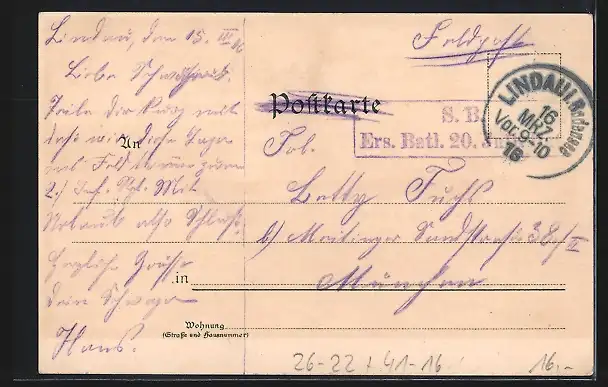 Lindau, den 15. III 16
Liebe Schwägerin.
Teile dir kurz mit
daß wir diese Tage
ins Feld
2.) Inf. Rgt. Mit
Urlaub also Schluß.
Herzliche Grüsse
dein Schwager
Hans.
Feldpost
Postkarte
S. B.
Ers. Batl. 20.
LINDAU i. Bodensee
16
MRZ.
Vor. 9-10
16
An
Frl.
Betty Fuchs
b/ Maitinger Sandstraße 38/II
in München
Wohnung
(Straße und Hausnummer)
26-22 + 41-16
16.-